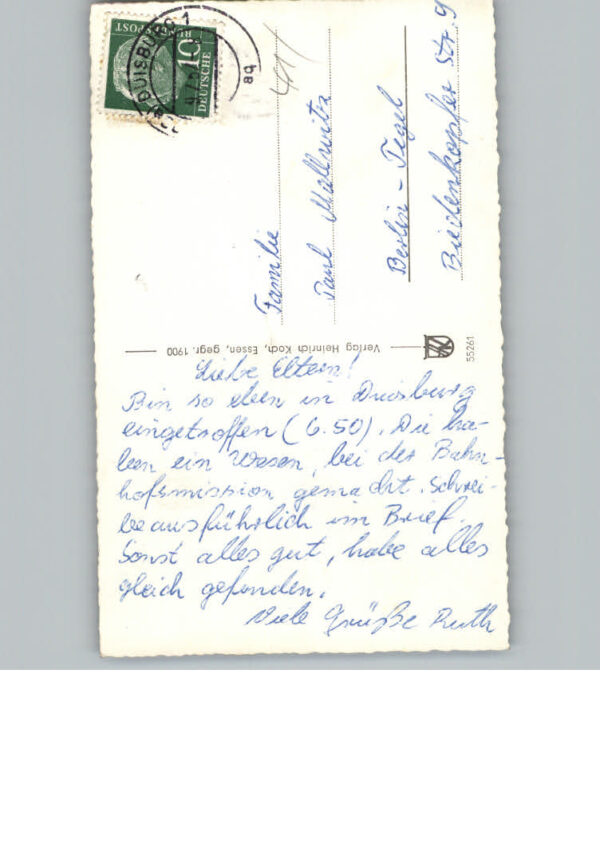 DUISBURG 1
aq
10
DEUTSCHE
BUNDESPOST
Familie
Paul Mallwitz
Berlin-Tegel
Biedenkopfer Str. 9
Verlag Heinrich Koch, Essen, gegr. 1900
55261
Liebe Eltern!
Bin so eben in Duisburg
eingetroffen (6.50). Die ha-
ben ein Wesen, bei der Bahn-
hofsmission gemacht. Schrei-
be ausführlich im Brief.
Sonst alles gut, habe alles
gleich gefunden.
Viele Grüße Ruth